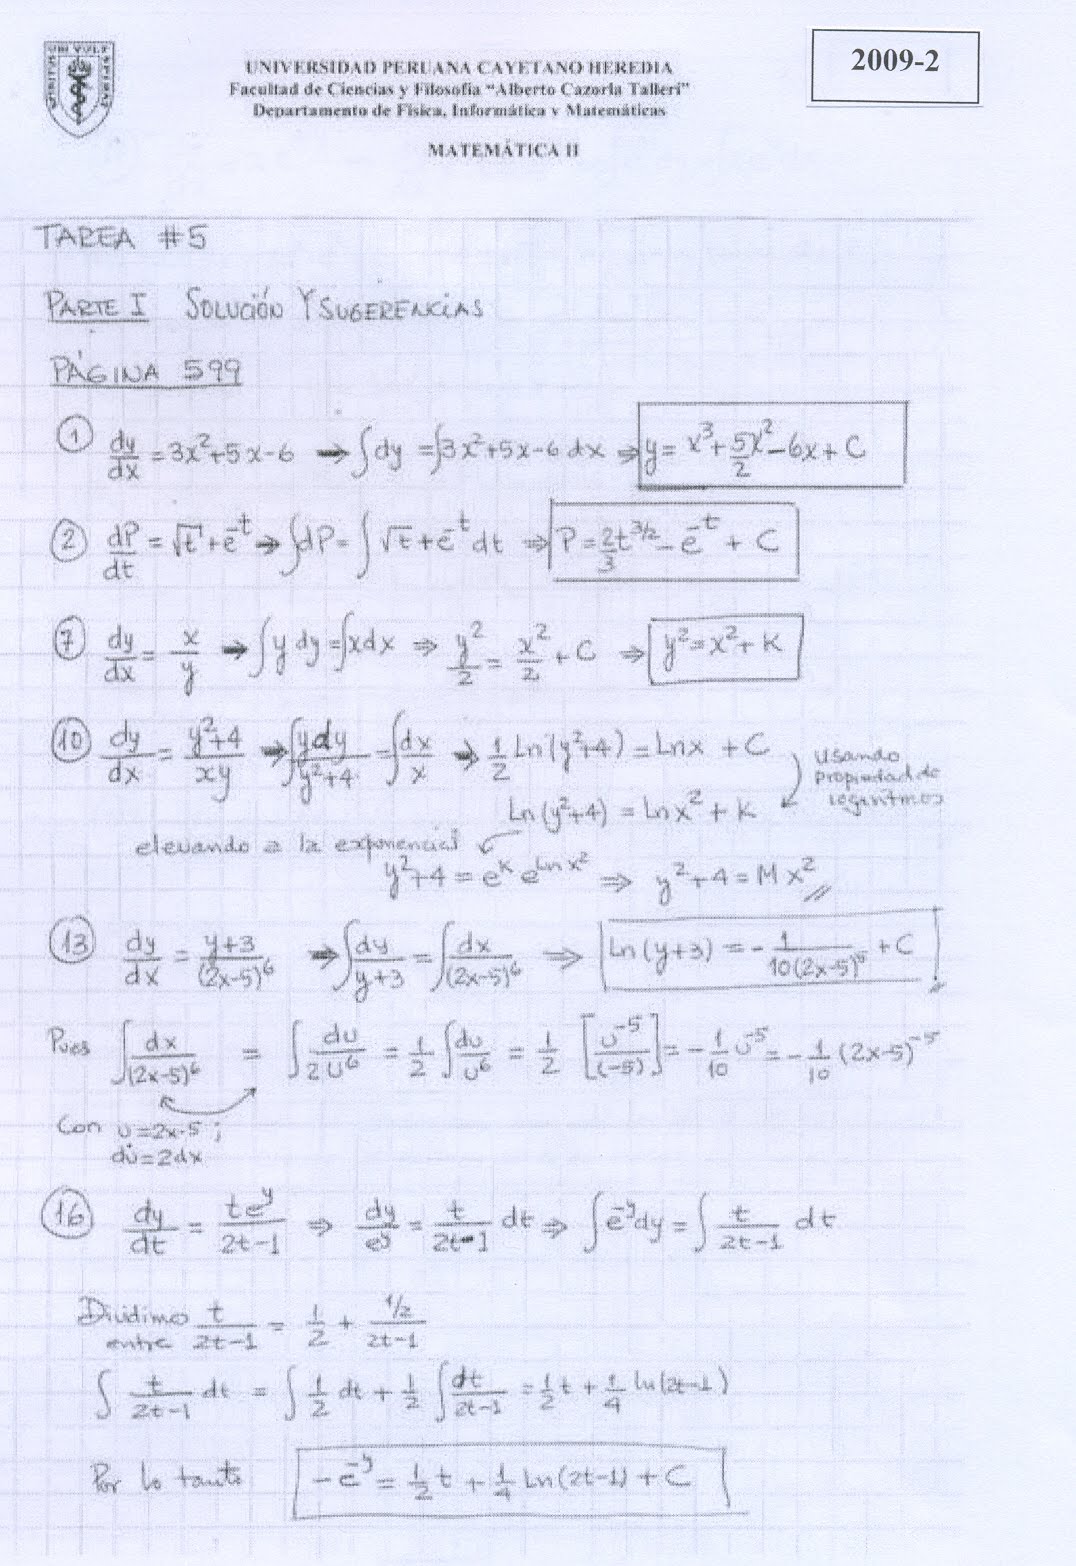 2009-2
UNIVERSIDAD PERUANA CAYETANO HEREDIA
Facultad de Ciencias y Filosofía “Alberto Cazorla Talleri”
Departamento de Física, Informática y Matemáticas
MATEMÁTICA II
TAREA #5
PARTE I SOLUCIÓN Y SUGERENCIAS
PÁGINA 599
① dy/dx = 3x²+5x-6 → ∫dy = ∫3x²+5x-6 dx ⇒ y = x³ + 5x²/2 - 6x + C
② dP/dt = √t + e^-t → ∫dP = ∫√t + e^-t dt ⇒ P = 2/3 t^3/2 - e^-t + C
⑦ dy/dx = x/y → ∫y dy = ∫x dx ⇒ y²/2 = x²/2 + C ⇒ y² = x² + K
⑩ dy/dx = (y²+4)/(xy) → ∫y dy/(y²+4) = ∫dx/x → 1/2 Ln(y²+4) = Lnx + C
usando
propiedad de
logaritmos
Ln(y²+4) = Lnx² + K
elevando a la exponencial
y²+4 = e^K e^Lnx² ⇒ y²+4 = Mx²
⑬ dy/dx = (y+3)/(2x-5)⁶ → ∫dy/(y+3) = ∫dx/(2x-5)⁶ ⇒ Ln(y+3) = -1/(10(2x-5)⁵) + C
Pues ∫dx/(2x-5)⁶ = ∫du/(2u⁶) = 1/2 ∫du/u⁶ = 1/2 [u^-5/(-5)] = -1/10 u^-5 = -1/10 (2x-5)^-5
Con u=2x-5;
du=2dx
⑯ dy/dt = te^y/(2t-1) ⇒ dy/e^y = t/(2t-1) dt ⇒ ∫e^-y dy = ∫t/(2t-1) dt
Dividimos t/(2t-1) = 1/2 + (1/2)/(2t-1)
entre
∫t/(2t-1) dt = ∫1/2 dt + 1/2 ∫dt/(2t-1) = 1/2 t + 1/4 ln(2t-1)
Por lo tanto -e^-y = 1/2 t + 1/4 Ln(2t-1) + C